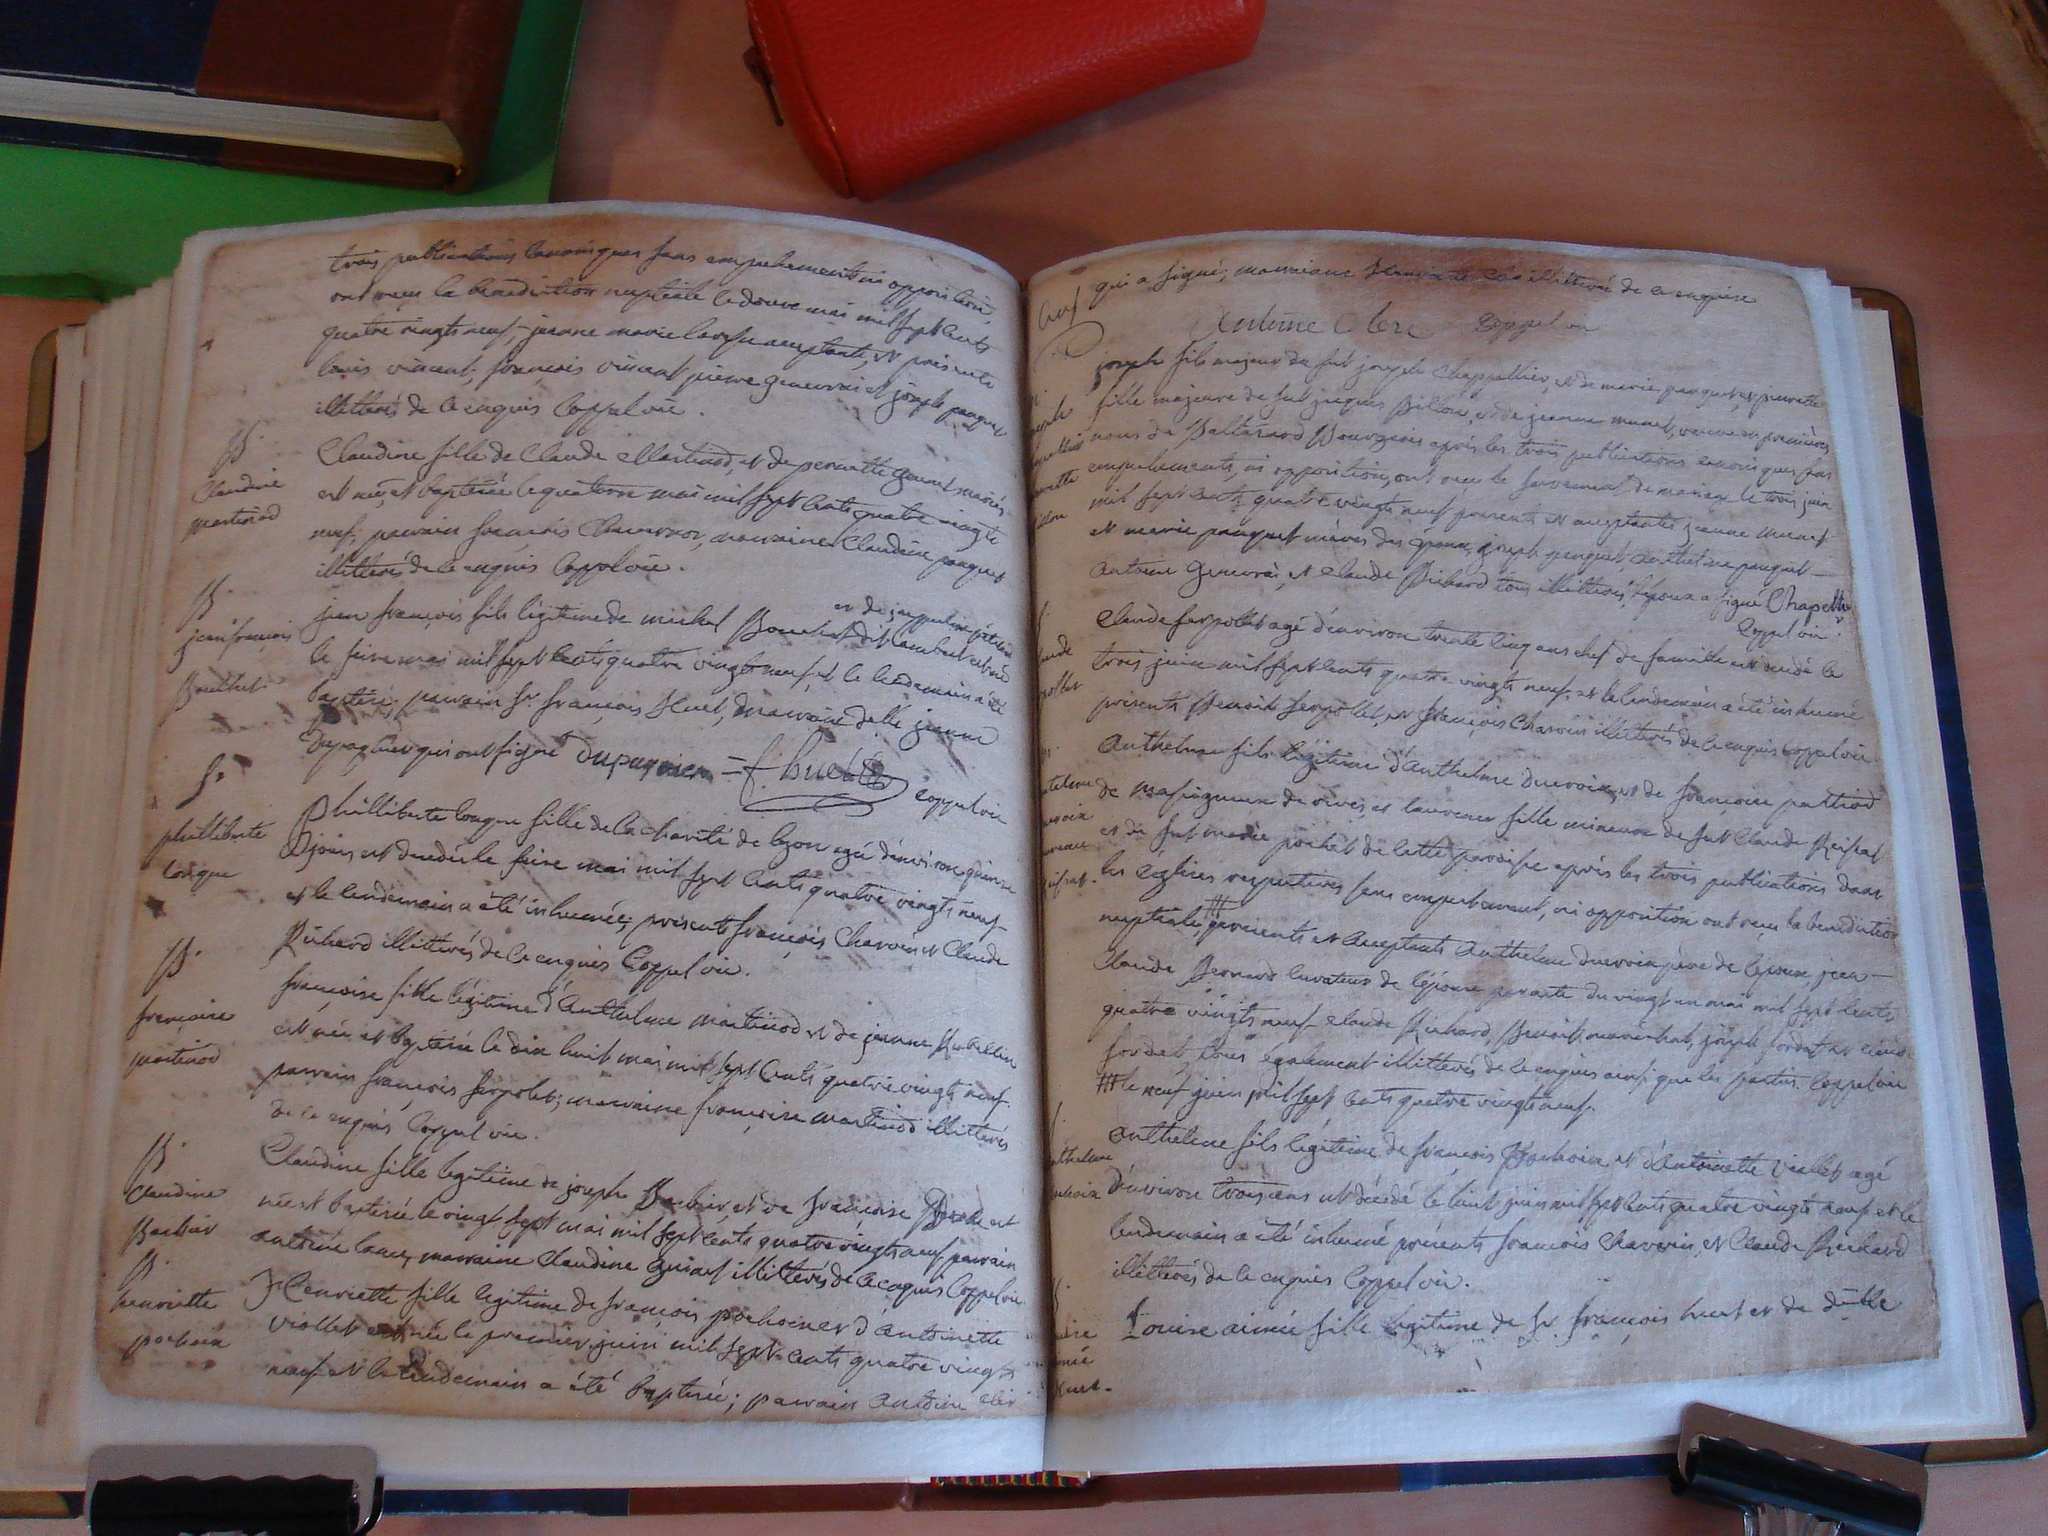 trois publications canoniques sans empechement ni opposition,
ont reçu la bénédiction nuptiale le douze mai mil sept cents
quatre vingts neuf, jeanne marie acceptante, et présents
louis vincent, françois vincent pierre genevrai et joseph panquet
illitterés de ce enquis Coppel vic.
B.
Claudine
martinod
Claudine fille de Claude Martinod, et de pernette mariés
est née et baptisée le quatorze mai mil sept cents quatre vingts
neuf, parrain françois marraine Claudine panquet
illitterés de ce enquis Coppel vic.
B.
jean françois
Bouchet
jean françois fils légitime de michel Bouchet dit lambert est né
le seize mai mil sept cents quatre vingts neuf, et le lendemain a été
baptisé, parrain Sr. françois Huet, marraine delle jeanne
Dupasquier qui ont signé Dupasquier = f. huet Coppel vic
S.
philliberte
longue
Philliberte longue fille de la charité de lyon agée d'environ quinze
jours est decedée le seize mai mil sept cents quatre vingts neuf
et le lendemain a été inhumée; présents françois Charvin et Claude
Richard illitterés de ce enquis Coppel vic.
B.
françoise
martinod
françoise fille légitime d'Anthelme martinod et de jeanne Rubellin
est née et baptisée le dix huit mai mil sept cents quatre vingts neuf.
parrain françois serpolet; marraine françoise martinod illitterés
de ce enquis Coppel vic.
B.
Claudine
Barbier
Claudine fille legitime de joseph Barbier et de françoise est
née et baptisée le vingt sept mai mil sept cents quatre vingts neuf, parrain
marraine Claudine illitterés de ce enquis Coppel vic
B.
henriette
pochoix
Henriette fille legitime de françois pochoix et d'Antoinette
viollet est née le premier juin mil sept cents quatre vingts
neuf et le lendemain a été baptisée; parrain Antoine clerc
qui a signé; marraine illitterée de ce enquise
Antoine clerc Coppel vic
joseph fils majeur de fut joseph Chappellier, et de marie panquet, et pierrette
fille majeure de fut jacques Billion, et de jeanne munet, veuve en premières
nous de Baltazard Bourgeois après les trois publications canoniques sans
empechements, ni opposition, ont reçu le sacrement de mariage le trois juin
mil sept cents quatre vingts neuf presents et acceptantes jeanne munet
et marie panquet mères des époux, joseph panquet Anthelme panquet
Antoine Genevrai et Claude Richard tous illitterés, l'époux a signé Chapellier
Coppel vic.
Claude serpollet agé d'environ trente cinq ans chef de famille est decedé le
trois juin mil sept cents quatre vingts neuf, et le lendemain a été inhumé
présents Benoit serpollet, et françois Charvin illitterés de ce enquis Coppel vic
Anthelme fils légitime d'Anthelme Ducroix, et de françoise pattiod
de et laurence fille mineure de fut Claude Reifrat
et de fut marie pochet de cette paroisse après les trois publications dans
les églises respectives sans empechement, ni opposition ont reçu la benediction
nuptiale, ### présents et acceptants Anthelme ducroix père de l'époux, jean
Claude Bernard curateur de l'épouse par acte du vingt un mai mil sept cents
quatre vingts neuf Claude Richard, Benoit joseph sordet et
sordet tous également illitterés de ce enquis ainsi que les parties. Coppel vic
### le neuf juin mil sept cents quatre vingts neuf.
Anthelme fils légitime de françois pochoix, et d'Antoinette viollet agé
d'environ trois ans est décédé le huit juin mil sept cents quatre vingts neuf et le
lendemain a été inhumé présents françois Charvin, et Claude Richard
illitterés de ce enquis Coppel vic.
Louise aimée fille legitime de Sr. françois huet et de delle